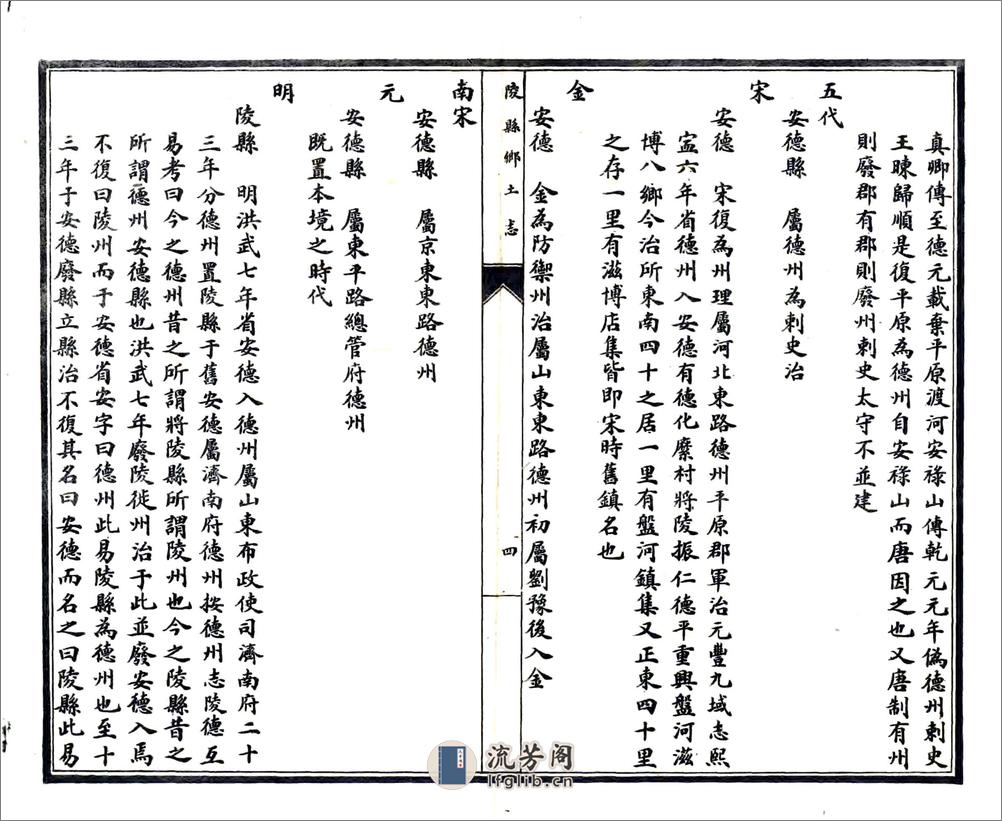 真卿傳至德元載棄平原渡河安祿山傳乾元元年偽德州刺史
王暕歸順是復平原為德州自安祿山而唐因之也又唐制有州
則廢郡有郡則廢州刺史太守不並建
五代
安德縣　屬德州為刺史治
宋
安德　宋復為州理屬河北東路德州平原郡軍治元豐九域志熙
寍六年省德州入安德有德化糜村將陵振仁德平重興盤河滋
博八鄉今治所東南四十之居一里有盤河鎮集又正東四十里
之存一里有滋博店集皆即宋時舊鎮名也
金
安德　金為防禦州治屬山東東路德州初屬劉豫後入金
陵縣鄉土志
四
南宋
安德縣　屬京東東路德州
元
安德縣　屬東平路總管府德州
既置本境之時代
明
陵縣　明洪武七年省安德入德州屬山東布政使司濟南府二十
三年分德州置陵縣于舊安德屬濟南府德州按德州志陵德互
易考曰今之德州昔之所謂將陵縣所謂陵州也今之陵縣昔之
所謂德州安德縣也洪武七年廢陵徙州治于此並廢安德入焉
不復曰陵州而于安德省安字曰德州此易陵縣為德州也至十
三年于安德廢縣立縣治不復其名曰安德而名之曰陵縣此易
流芳阁
lfglib.cn